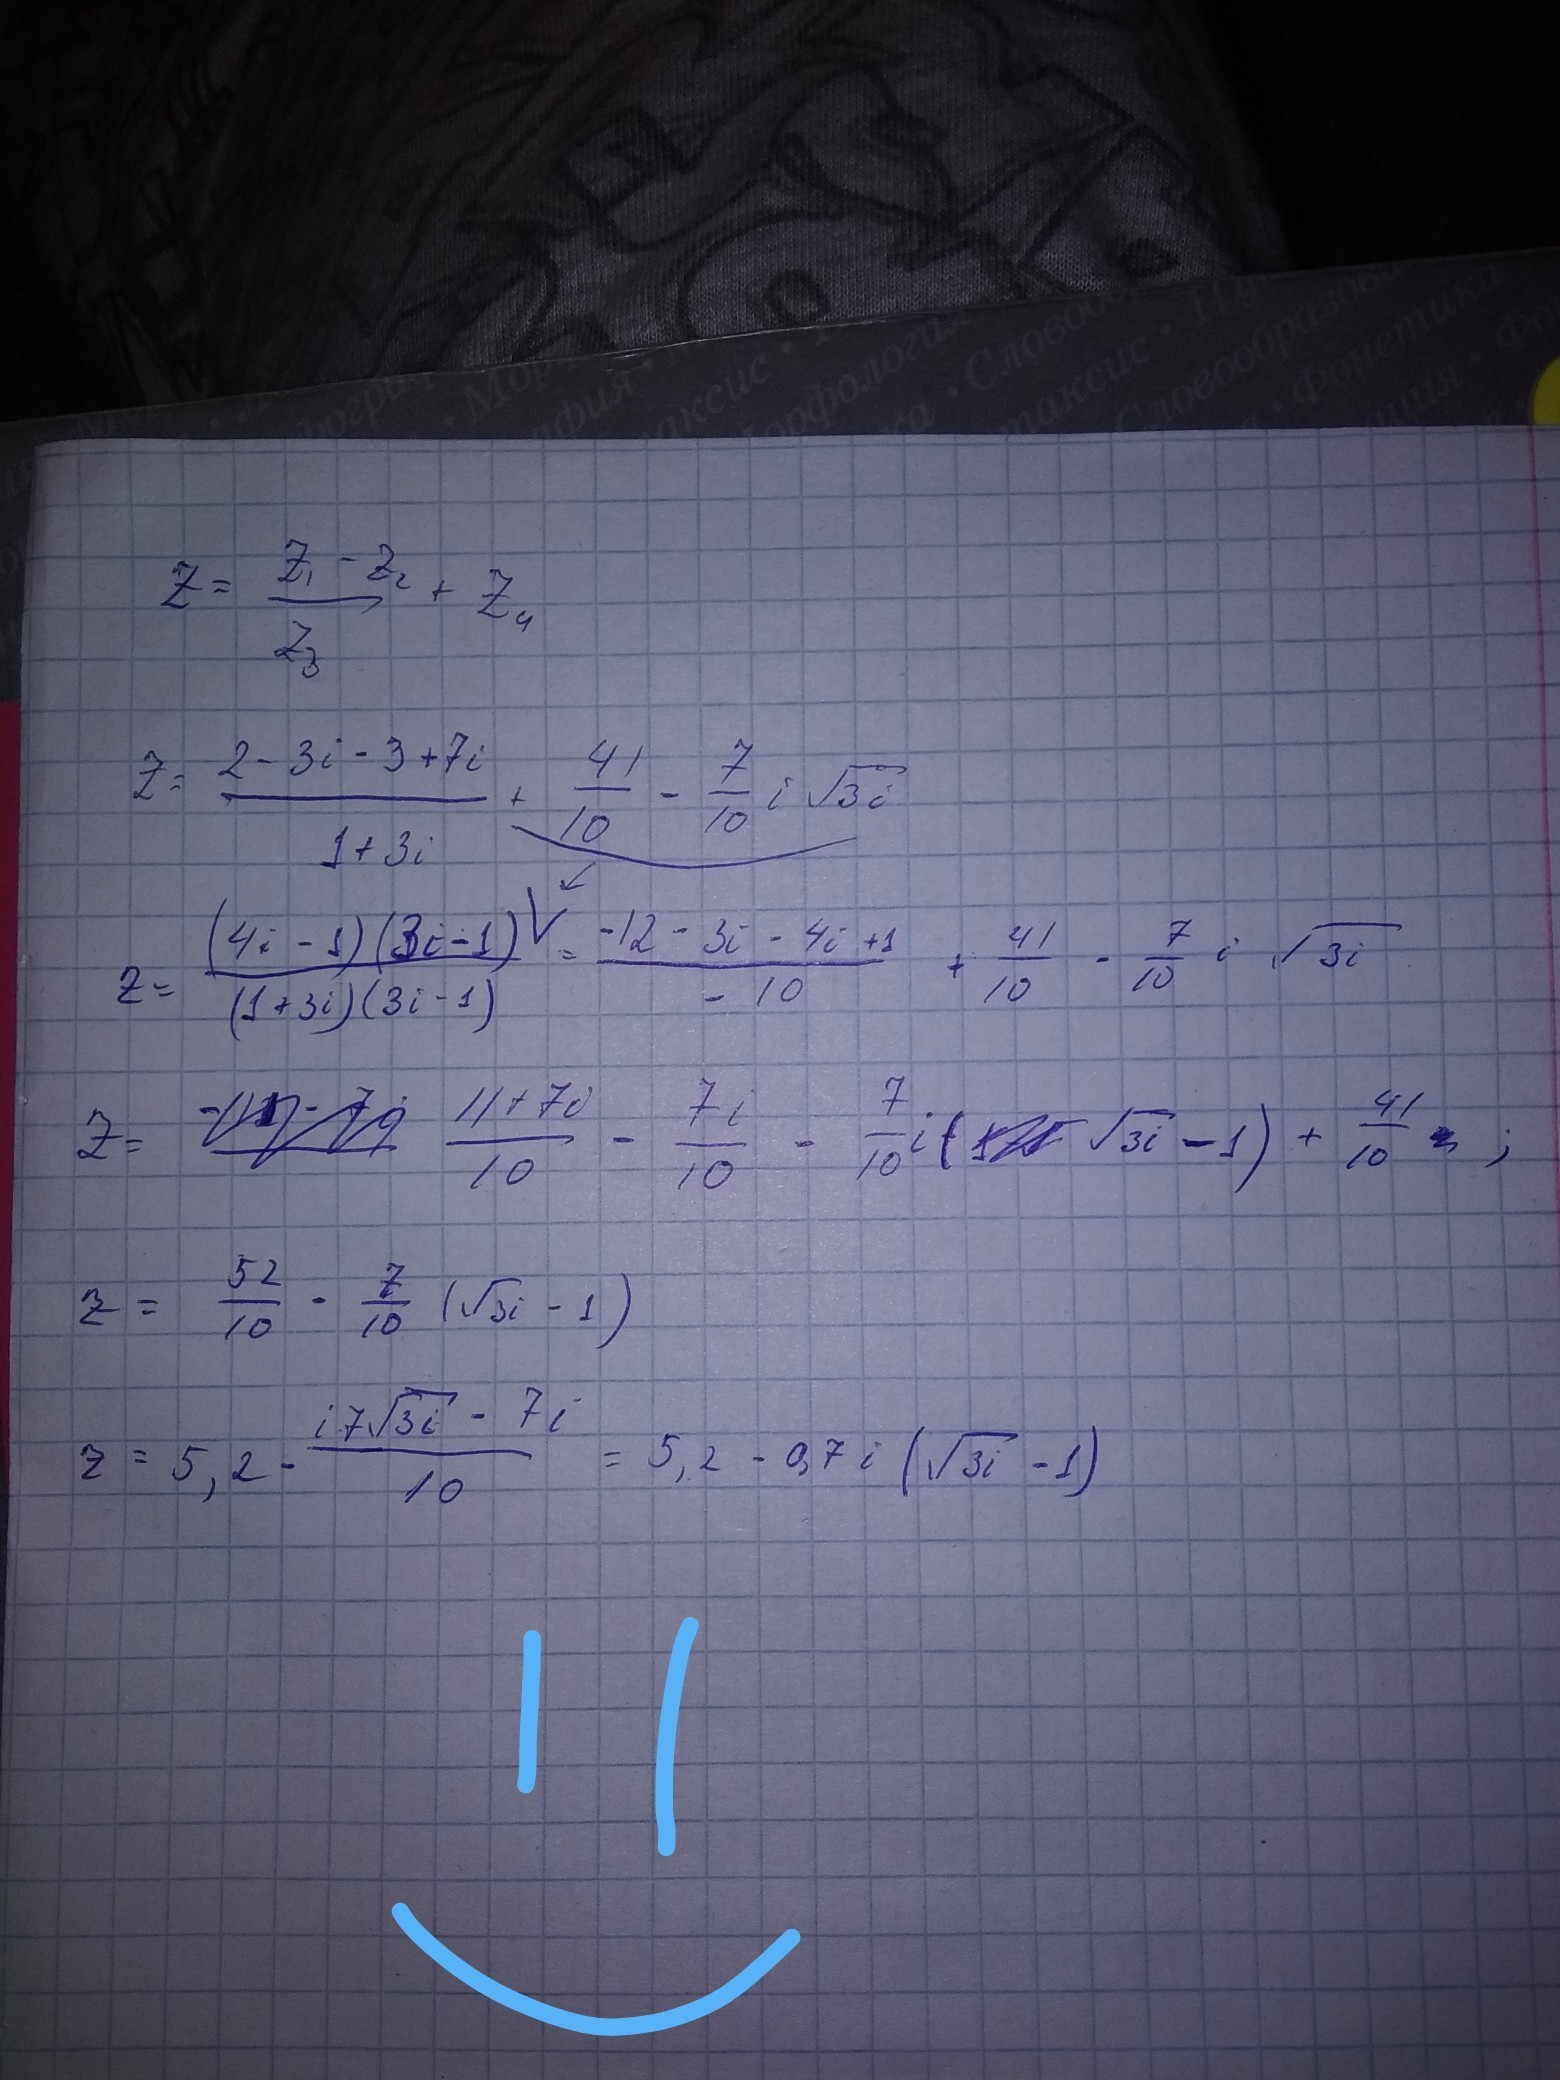 Морфология · Словообразов
таксис · Словообразова
Фонетика
Z = (Z₁ - Z₂)/Z₃ + Z₄
Z = (2 - 3i - 3 + 7i)/(1 + 3i) + 41/10 - 7/10 i √3i
z = (4i - 1)(3i - 1)/(1 + 3i)(3i - 1) = (-12 - 3i - 4i + 1)/(-10) + 41/10 - 7/10 i √3i
Z = (11 + 7i)/10 - 7i/10 - 7/10 i(√3i - 1) + 41/10 ;
z = 52/10 - 7/10 (√3i - 1)
z = 5,2 - (i7√3i - 7i)/10 = 5,2 - 0,7 i (√3i - 1)